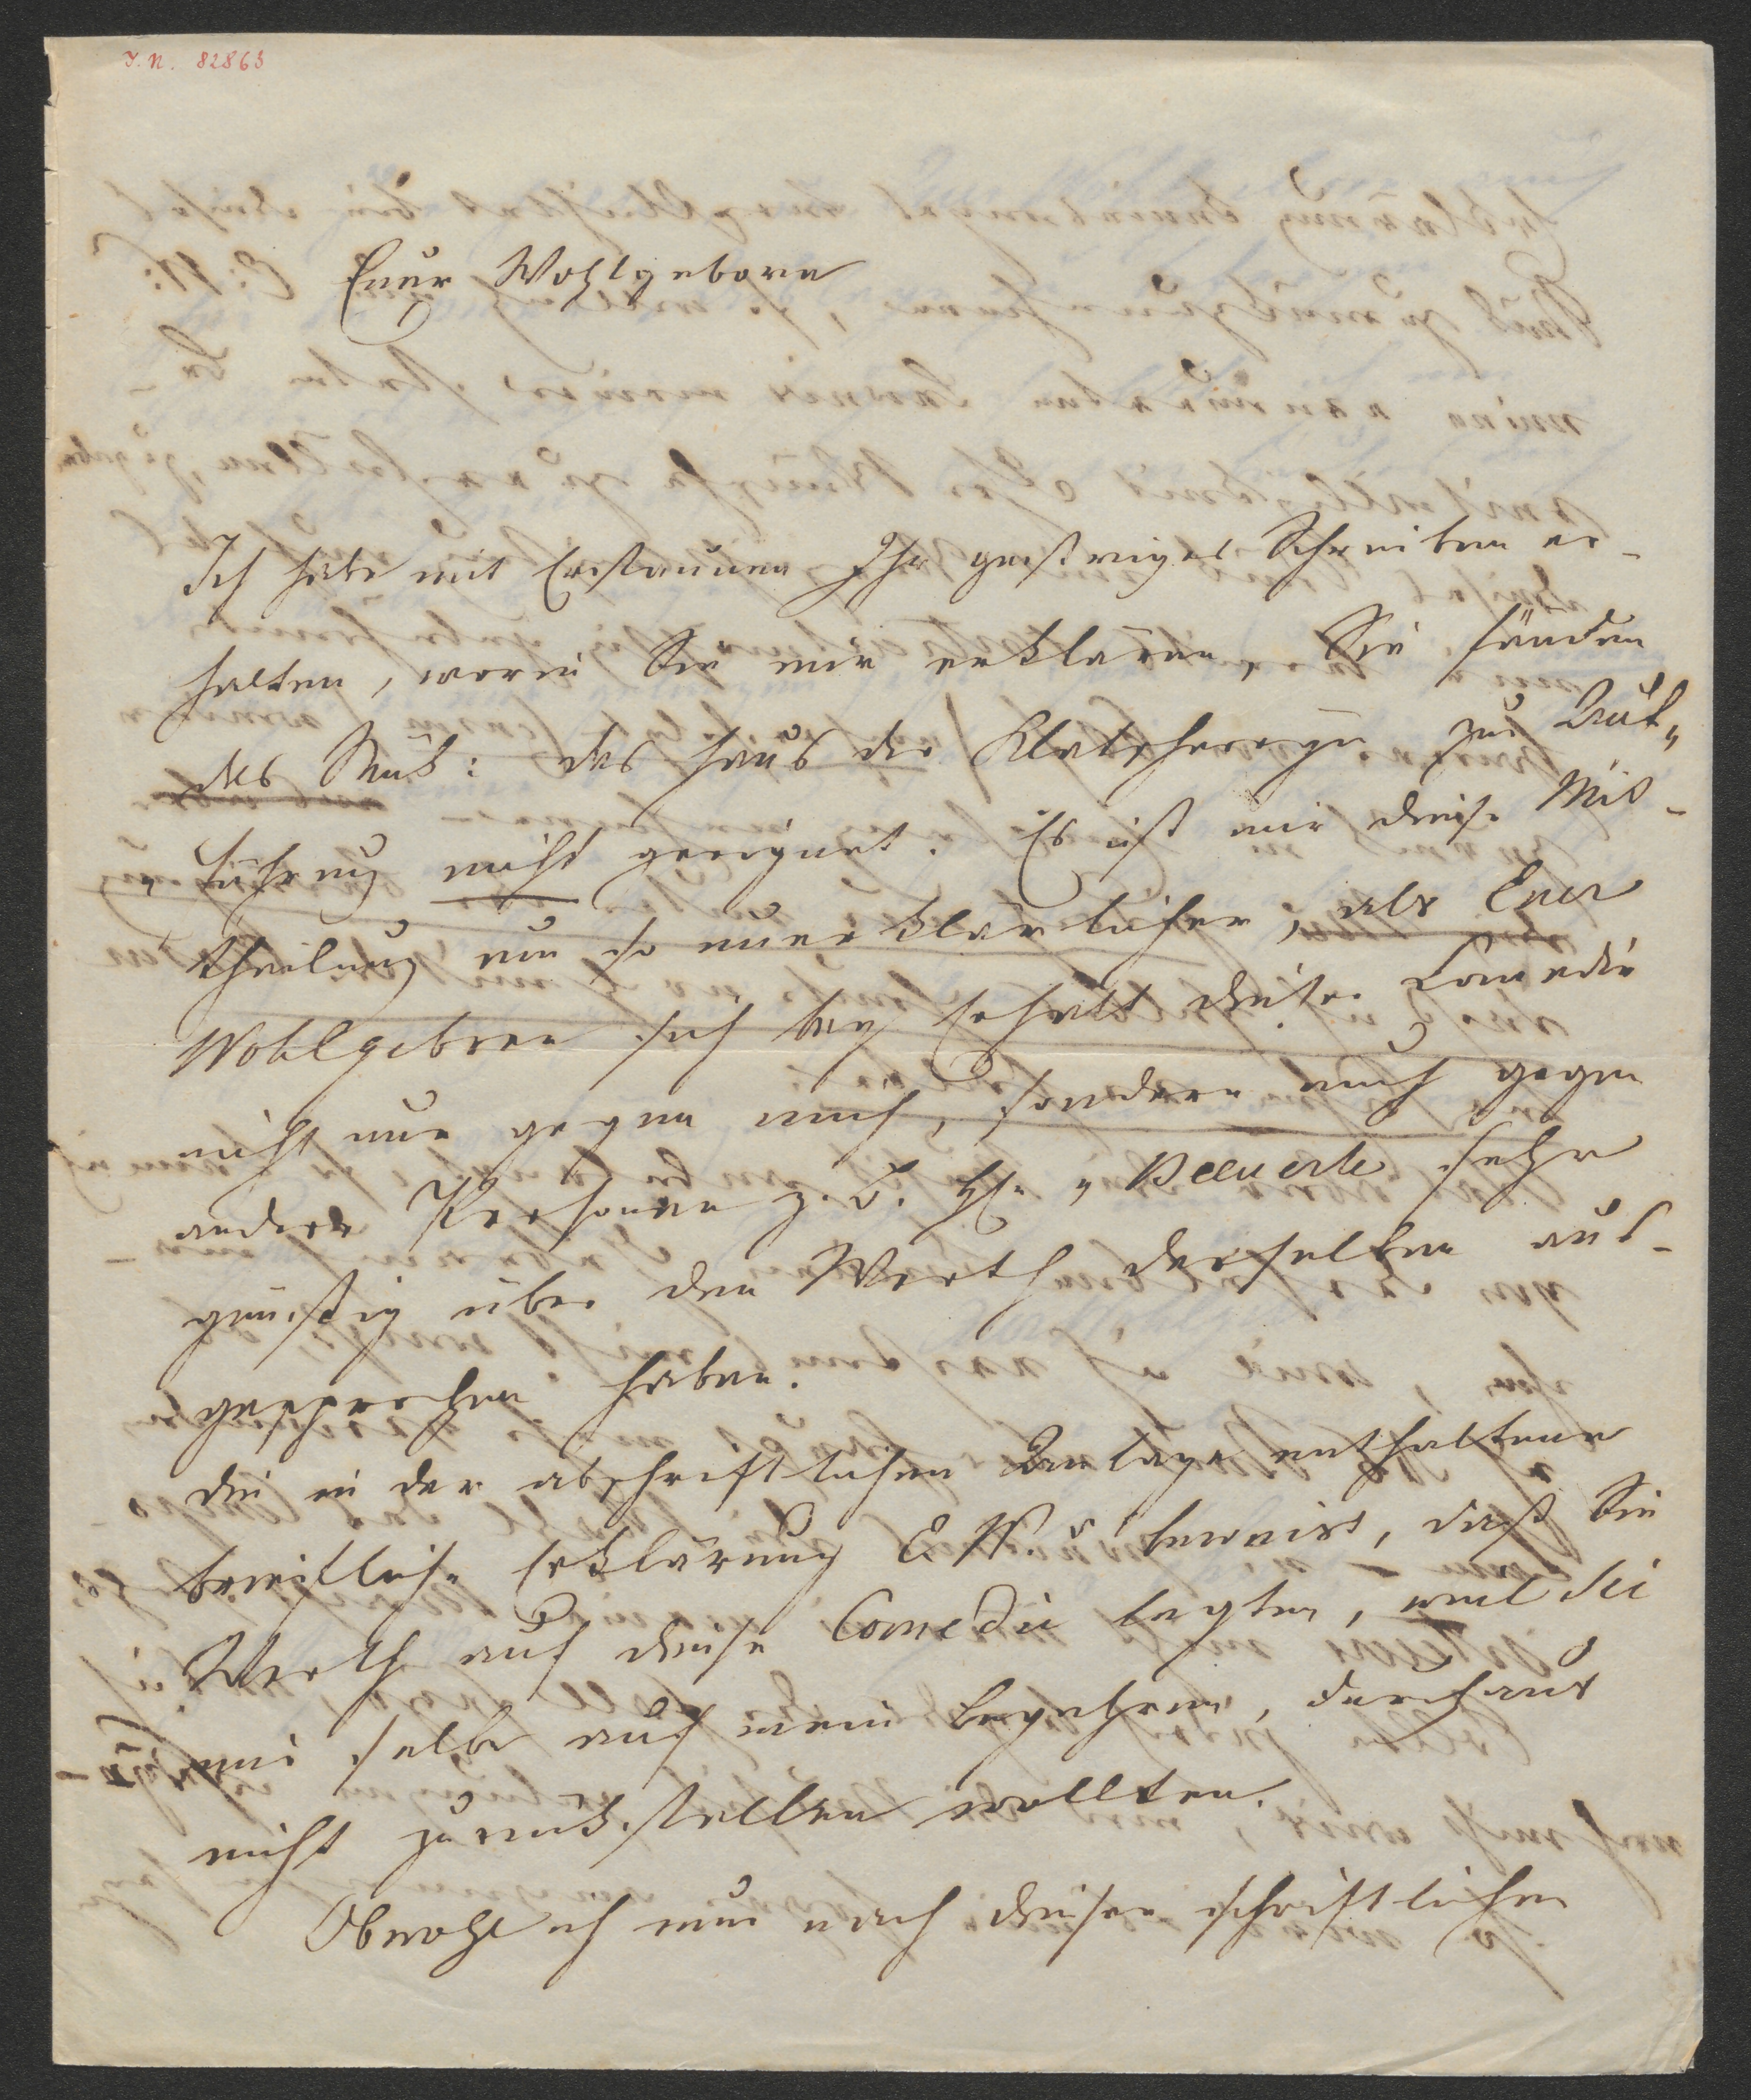 I. N. 82863
Euer Wohlgeboren
Ich habe mit Erstaunen Ihr gestriges Schreiben er-
halten, worin Sie mir erklären, Sie fänden
das Stück: das Haus der Klatschereyen zur Auf-
führung nicht geeignet. Es ist mir diese Mit-
theilung um so unerklärlicher, als Euer
Wohlgeboren sich bey Erhalt dieser Comedie
nicht nur gegen mich, sondern auch gegen
andere Personen z. B. H. sehr
günstig über den Werth derselben aus-
gesprochen haben.
die in der abschriftlichen Anlage enthaltene
briefliche Erklärung E. W. beweist, daß Sie
Werth auf diese Comedie legten, weil Sie
mir selbe auf mein Begehren, durchaus
nicht zurückstellen wollten.
Obwohl ich nun nach dieser schriftlichen